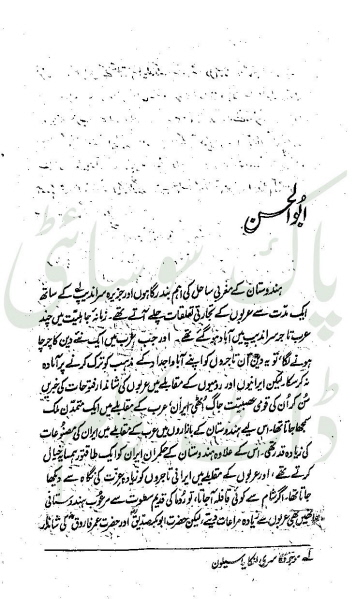 ابُو الحسن
ہندوستان کے مغربی ساحل کی اہم بندرگاہوں اور جزیرہ سراندیپ لے کے ساتھ
ایک مدّت سے عربوں کے تجارتی تعلقات چلے آتے تھے۔ زمانہ جاہلیت میں چند
عرب تاجر سراندیپ میں آباد ہو گئے تھے۔ اور جب عرب میں ایک نئے دین کا چرچا
ہونے لگا، تو یہ دین اُن تاجروں کو اپنے آباواجداد کے مذہب کو ترک کرنے پر آمادہ
نہ کر سکا۔ لیکن ایرانیوں اور رومیوں کے مقابلے میں عربوں کی شاندار فتوحات کی خبریں
سُن کر اُن کی قومی عصبیت جاگ اٹھی۔ ایران عرب کے مقابلے میں ایک متمدن ملک
سمجھا جاتا تھا۔ اس لیے ہندوستان کے بازاروں میں عرب کے مقابلے میں ایران کی مصنوعات
کی زیادہ قدر تھی۔ اس کے علاوہ ہندوستان کے حکمران ایران کو ایک طاقتور ہمسایہ خیال
کرتے تھے، اور عربوں کے مقابلے میں ایرانی تاجروں کو زیادہ عزت کی نگاہ سے دیکھا
جاتا تھا۔ اگر شام سے کوئی قافلہ آ جاتا، تو رُوما کی قدیم سطوت سے مرعوب ہندوستانی
انھیں بھی عربوں سے زیادہ مراعات دیتے، لیکن حضرت ابوبکر صدیق اور حضرت عمر فاروق کی شاندار
لے موجودہ سری لنکا یا سیلون
پاک سوسائٹی